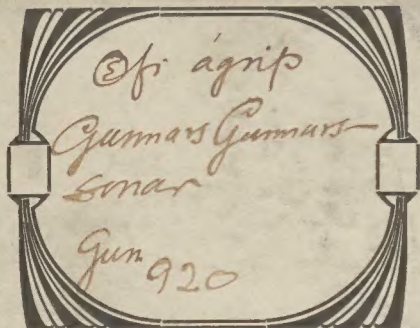 Æfi ágrip
Gunnars Gunnars-
sonar
Gun
920